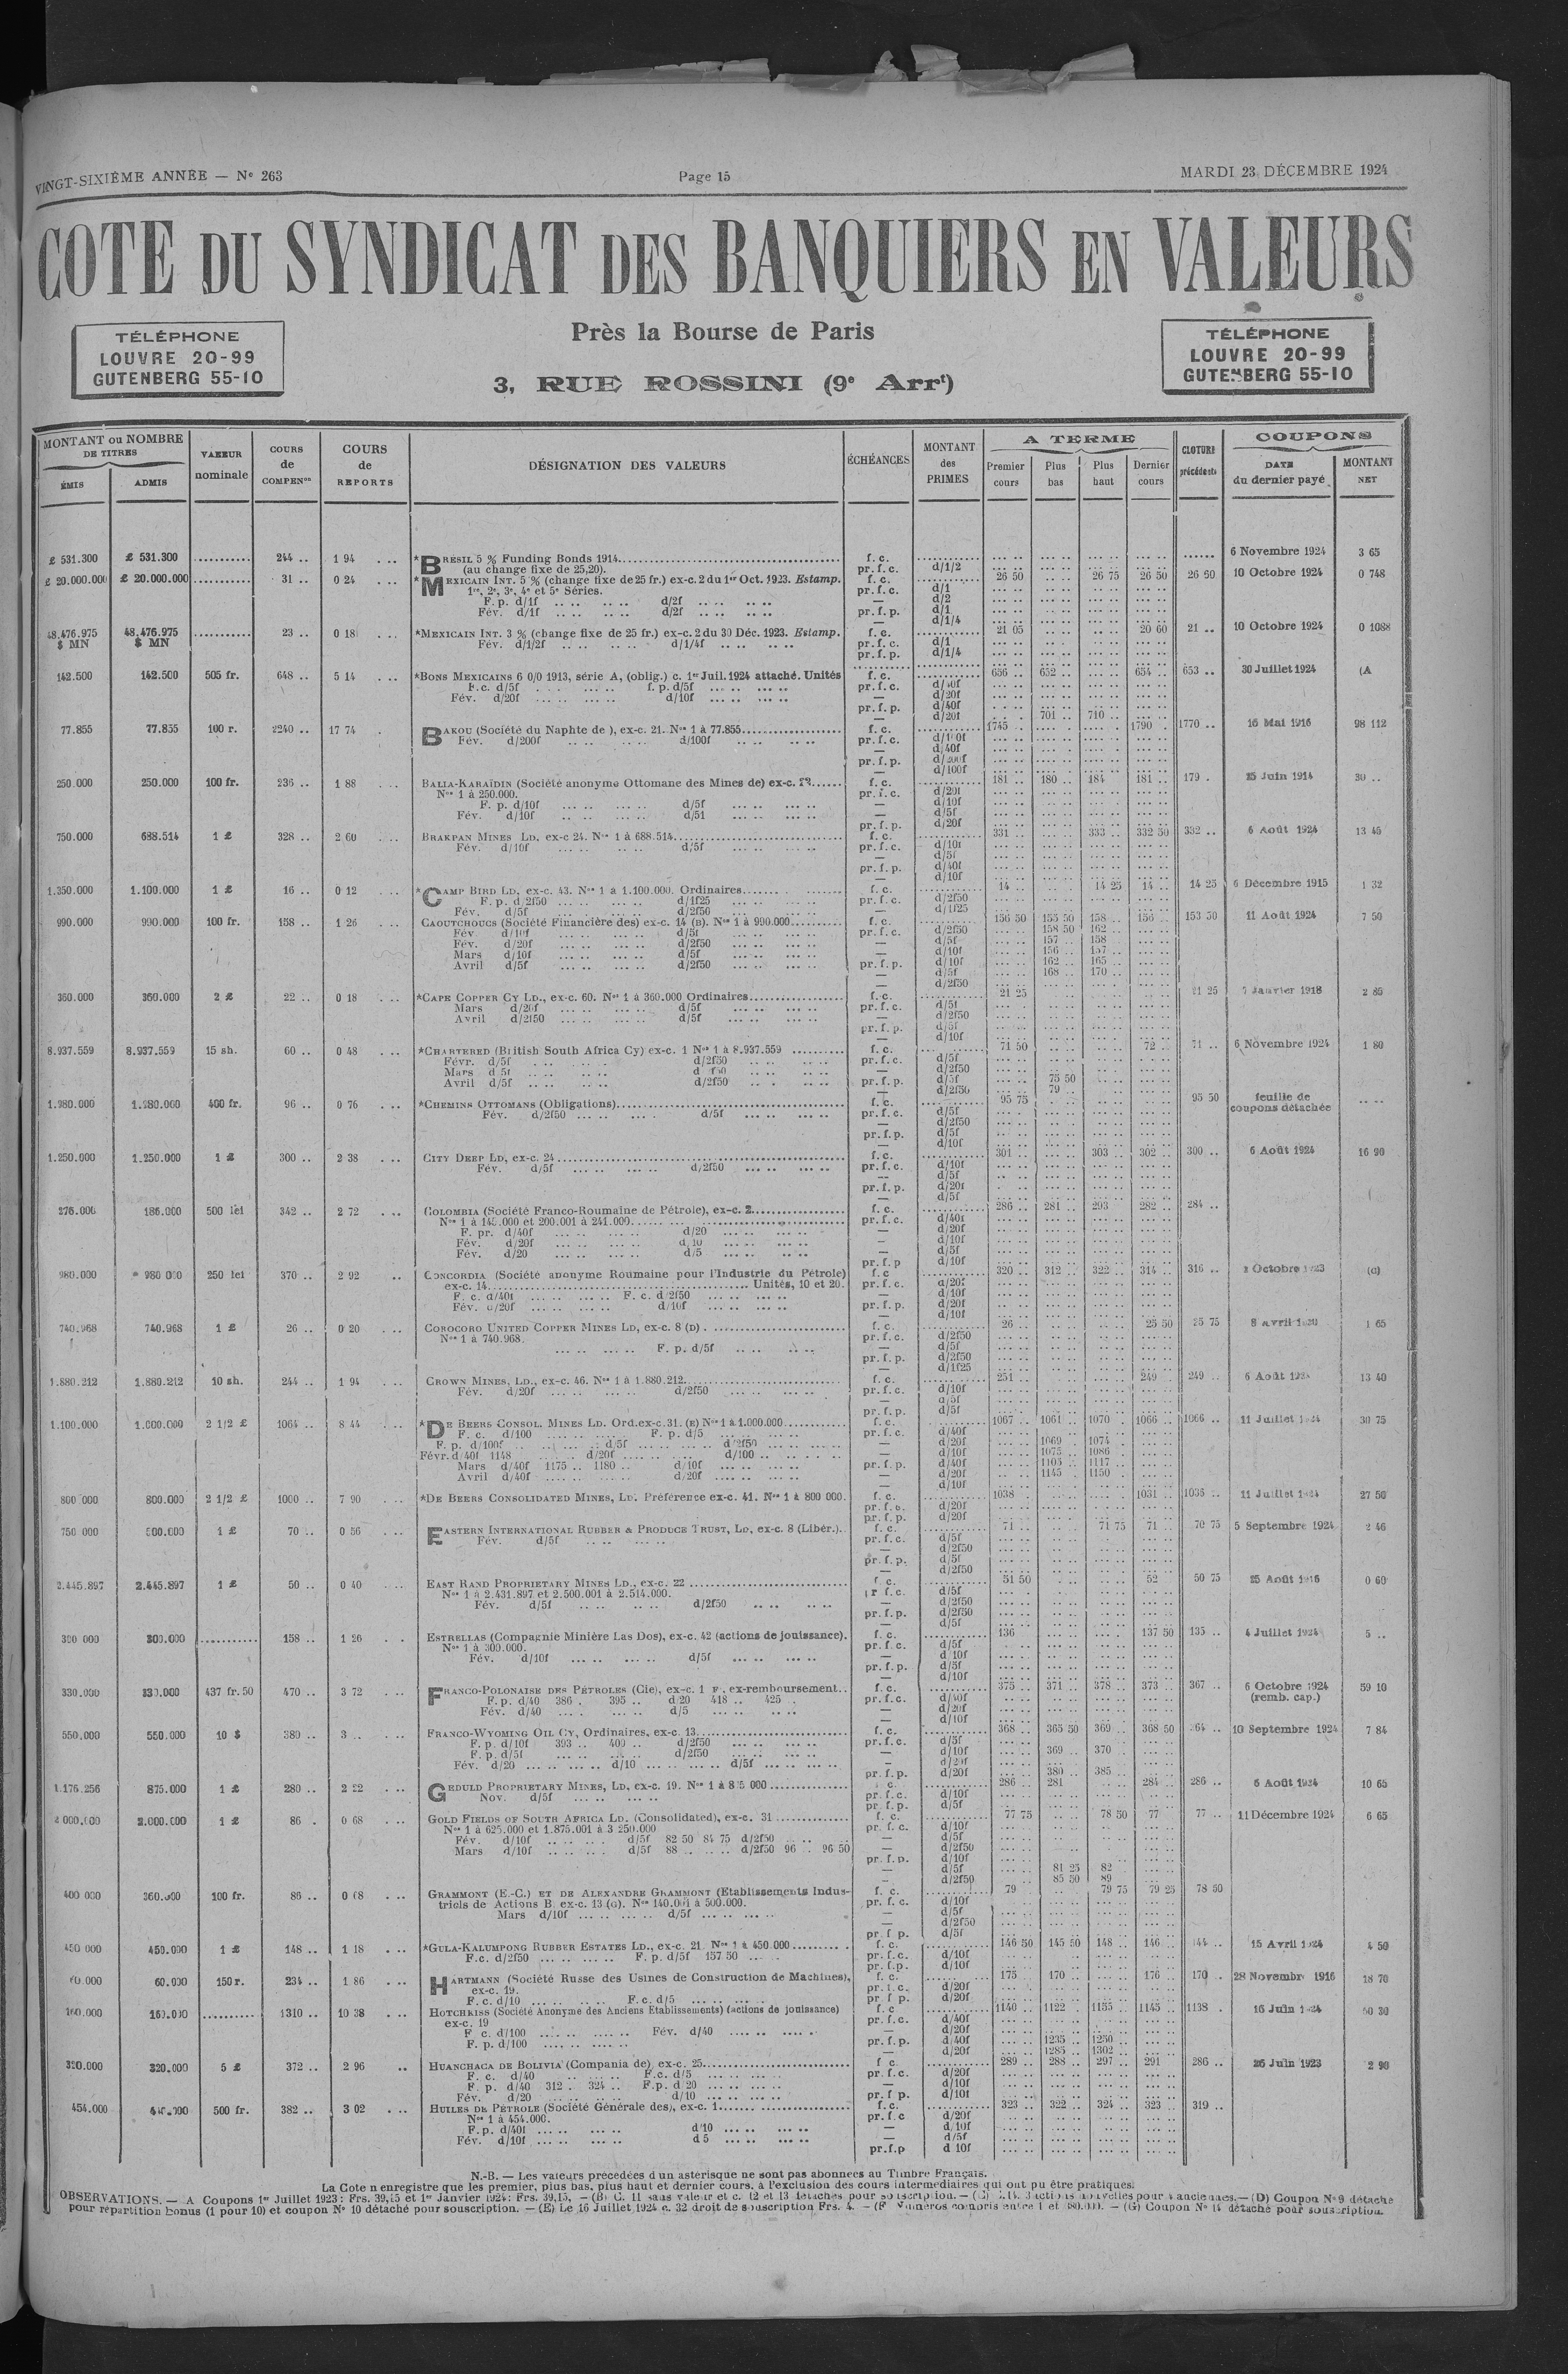 VINGT-SIXIÈME ANNÉE — Nº 263
Page 15
MARDI 23 DÉCEMBRE 1924
COTE DU SYNDICAT DES BANQUIERS EN VALEURS
Près la Bourse de Paris
3, RUE ROSSINI (9e Arrt)
TÉLÉPHONE
LOUVRE 20-99
GUTENBERG 55-10
TÉLÉPHONE
LOUVRE 20-99
GUTENBERG 55-10
MONTANT ou NOMBRE DE TITRES
ÉMIS ADMIS
VALEUR nominale
COURS de COMPENon
COURS de REPORTS
DÉSIGNATION DES VALEURS
ÉCHÉANCES
MONTANT des PRIMES
A TERME
Premier cours Plus bas Plus haut Dernier cours
CLOTURE précédente
COUPONS
DATE du dernier payé MONTANT NET
£ 531.300 £ 531.300 ........... 244 .. 1 94 *BRÉSIL 5 % Funding Bonds 1914 f. c. 6 Novembre 1924 3 65
(au change fixe de 25,20). pr. f. c. d/1/2
£ 20.000.000 £ 20.000.000 ........... 31 .. 0 24 *MEXICAIN INT. 5 % (change fixe de 25 fr.) ex-c. 2 du 1er Oct. 1923. Estamp. f. c. 26 50 26 75 26 50 26 60 10 Octobre 1924 0 748
1re, 2e, 3e, 4e et 5e Séries. pr. f. c. d/1
F. p. d/1f .. .. .. .. d/2f .. .. .. .. — d/2
Fév. d/1f .. .. .. .. d/2f .. .. .. .. pr. f. p. d/1
— d/1/4
48.476.975 $ MN 48.476.975 $ MN ........... 23 .. 0 18 *MEXICAIN INT. 3 % (change fixe de 25 fr.) ex-c. 2 du 30 Déc. 1923. Estamp. f. c. 21 05 20 60 21 .. 10 Octobre 1924 0 1088
Fév. d/1/2f .. .. .. .. d/1/4f .. .. .. .. pr. f. c. d/1
pr. f. p. d/1/4
142.500 142.500 505 fr. 648 .. 5 14 *BONS MEXICAINS 6 0/0 1913, série A, (oblig.) c. 1er Juil. 1924 attaché. Unités f. c. 656 .. 652 .. 654 .. 653 .. 30 Juillet 1924 (A
F. c. d/5f f. p. d/5f pr. f. c.
Fév. d/20f d/10f — d/20f
pr. f. p. d/40f
— d/20f 701 .. 710 ..
77.855 77.855 100 r. 2240 .. 17 74 BAKOU (Société du Naphte de ), ex-c. 21. Nos 1 à 77.855 f. c. 1745 .. 1790 .. 1770 .. 16 Mai 1916 98 112
Fév. d/200f d/100f pr. f. c.
— d/40f
pr. f. p. d/200f
— d/100f
250.000 250.000 100 fr. 236 .. 1 88 BALIA-KARAÏDIN (Société anonyme Ottomane des Mines de) ex-c. f. c. 181 .. 180 .. 184 181 .. 179 . 25 Juin 1914 30 ..
Nos 1 à 250.000. pr. f. c. d/20f
F. p. d/10f d/5f — d/10f
Fév. d/10f — d/5f
pr. f. p. d/20f
750.000 688.514 1 £ 328 .. 2 60 BRAKPAN MINES LD, ex-c 24. Nos 1 à 688.514 f. c. 331 .. 333 .. 332 50 332 .. 6 Août 1924 13 45
Fév. d/10f d/5f pr. f. c. d/10f
— d/5f
pr. f. p. d/40f
— d/10f
1.350.000 1.100.000 1 £ 16 .. 0 12 *CAMP BIRD LD, ex-c. 43. Nos 1 à 1.100.000. Ordinaires f. c. 14 .. 14 25 14 .. 14 25 6 Décembre 1915 1 32
F. p. d/2f50 d/1f25 pr. f. c. d/2f50
Fév. d/5f d/2f50 — d/1f25
990.000 990.000 100 fr. 158 .. 1 26 CAOUTCHOUCS (Société Financière des) ex-c. 14 (B). Nos 1 à 990.000 f. c. 156 50 155 50 158 .. 156 .. 153 50 11 Août 1924 7 50
Fév. d/10f d/5f pr. f. c. d/2f50 158 50 162 ..
Fév. d/20f d/2f50 — d/5f 157 .. 158
Mars d/10f d/5f — d/10f 156 .. 157 ..
Avril d/5f d/2f50 pr. f. p. d/10f 162 .. 165 ..
— d/5f 168 .. 170 ..
— d/2f50
360.000 360.000 2 £ 22 .. 0 18 *CAPE COPPER CY LD., ex-c. 60. Nos 1 à 360.000 Ordinaires f. c. 21 25 21 25 7 Janvier 1918 2 85
Mars d/20f d/5f pr. f. c. d/5f
Avril d/2f50 d/5f — d/2f50
pr. f. p. d/5f
— d/10f
8.937.559 8.937.559 15 sh. 60 .. 0 48 *CHARTERED (British South Africa Cy) ex-c. 1 Nos 1 à 8.937.559 f. c. 71 50 72 .. 71 .. 6 Novembre 1924 1 80
Févr. d/5f d/2f50 pr. f. c. d/5f
Mars d/5f — d/2f50
Avril d/5f d/2f50 pr. f. p. d/5f 75 50
— d/2f50 79 ..
1.980.000 1.980.000 400 fr. 96 .. 0 76 *CHEMINS OTTOMANS (Obligations) f. c. 95 75 95 50 feuille de coupons détachée
Fév. d/2f50 d/5f pr. f. c. d/5f
— d/2f50
pr. f. p. d/5f
— d/10f
1.250.000 1.250.000 1 £ 300 .. 2 38 CITY DEEP LD, ex-c. 24 f. c. 301 .. 303 .. 302 .. 300 .. 6 Août 1924 16 90
Fév. d/5f d/2f50 pr. f. c. d/10f
— d/5f
pr. f. p. d/20f
— d/5f
186.000 500 lei 342 .. 2 72 COLOMBIA (Société Franco-Roumaine de Pétrole), ex-c. 2 f. c. 286 .. 281 .. 293 282 .. 284 ..
Nos 1 à 145.000 et 200.001 à 241.000 pr. f. c. d/40f
F. pr. d/40f d/20 — d/20f
Fév. d/20f d/10 — d/10f
Fév. d/20 d/5 — d/5f
pr. f. p d/10f
980.000 980 000 250 lei 370 .. 2 92 CONCORDIA (Société anonyme Roumaine pour l'Industrie du Pétrole) f. c 320 .. 312 .. 322 .. 314 .. 316 .. Octobre 1923
ex-c. 14 Unités, 10 et 20. pr. f. c. d/20f
F. c. d/40f F. c. d/2f50 — d/10f
Fév. d/20f d/10f pr. f. p. d/20f
— d/10f
740.968 740.968 1 £ 26 .. 0 20 COROCORO UNITED COPPER MINES LD, ex-c. 8 (D) f. c. 26 .. 25 50 25 75 8 avril 1 65
Nos 1 à 740.968. pr. f. c. d/2f50
F. p. d/5f — d/5f
pr. f. p. d/2f50
— d/1f25
1.880.212 1.880.212 10 sh. 244 .. 1 94 CROWN MINES, LD., ex-c. 46. Nos 1 à 1.880.212 f. c. 251 .. 249 .. 249 .. 6 Août 1924 13 40
Fév. d/20f d/2f50 pr. f. c. d/10f
— d/5f
pr. f. p. d/5f
1.100.000 1.000.000 2 1/2 £ 1064 .. 8 44 *DE BEERS CONSOL. MINES LD. Ord. ex-c. 31. (E) Nos 1 à 1.000.000 f. c. 1067 .. 1061 .. 1070 . 1066 .. 1066 .. 11 Juillet 1924 30 75
F. c. d/100 F. p. d/5 pr. f. c. d/40f
F. p. d/100f d/5f d/2f50 — d/20f 1069 1074 ..
Févr. d/40f 1148 d/20f d/100 — d/10f 1075 .. 1086
Mars d/40f 1175 .. 1180 .. d/10f pr. f. p. d/40f 1105 .. 1117
Avril d/40f d/20f — d/20f 1145 1150
— d/10f
800 000 800.000 2 1/2 £ 1000 .. 7 90 *DE BEERS CONSOLIDATED MINES, LD. Préférence ex-c. 41. Nos 1 à 800 000. f. c. 1038 . 1031 .. 1035 .. 11 Juillet 1924 27 50
pr. f. c. d/20f
pr. f. p. d/20f
750 000 500.000 1 £ 70 .. 0 56 EASTERN INTERNATIONAL RUBBER & PRODUCE TRUST, LD, ex-c. 8 (Libér.). f. c. 71 .. 71 75 71 .. 70 75 5 Septembre 1924 2 46
Fév. d/5f pr. f. c. d/5f
— d/2f50
pr. f. p. d/5f
— d/2f50
2.445.897 2.445.897 1 £ 50 .. 0 40 EAST RAND PROPRIETARY MINES LD., ex-c. 22 f. c. 51 50 52 50 75 25 Août 1916 0 60
Nos 1 à 2.431.897 et 2.500.001 à 2.514.000. pr f. c. d/5f
Fév. d/5f d/2f50 — d/2f50
pr. f. p. d/2f50
— d/5f
300 000 300.000 ........... 158 .. 1 26 ESTRELLAS (Compagnie Minière Las Dos), ex-c. 42 (actions de jouissance). f. c. 136 137 50 135 .. 4 Juillet 1924 5 ..
Nos 1 à 300.000. pr. f. c. d/5f
Fév. d/10f d/5f — d/10f
pr. f. p. d/5f
— d/10f
330.000 330.000 437 fr. 50 470 .. 3 72 FRANCO-POLONAISE DES PÉTROLES (Cie), ex-c. 1 F, ex-remboursement. f. c. 375 .. 371 .. 378 .. 373 .. 367 .. 6 Octobre 1924 59 10
F. p. d/40 386 . 395 .. d/20 418 .. 425 . pr. f. c. d/40f (remb. cap.)
Fév. d/40 d/5 — d/20f
— d/10f
550.000 550.000 10 $ 380 .. 3 .. FRANCO-WYOMING OIL CY, Ordinaires, ex-c. 13 f. c. 368 .. 365 50 369 .. 368 50 364 .. 10 Septembre 1924 7 84
F. p. d/10f 393 .. 400 .. d/2f50 pr. f. c. d/5f
F. p. d/5f d/2f50 — d/10f 369 .. 370 ..
Fév. d/20 d/10 d/5f — d/20f
pr. f. p. d/20f 380 .. 385 ..
1.176.256 875.000 1 £ 280 .. 2 22 GEDULD PROPRIETARY MINES, LD, ex-c. 19. Nos 1 à 875 000 286 .. 281 284 .. 286 .. 6 Août 1924 10 65
Nov. d/5f pr. f. c. d/10f
pr. f. p. d/5f
2 000.000 2.000.000 1 £ 86 . 0 68 GOLD FIELDS OF SOUTH AFRICA LD. (Consolidated), ex-c. 31 f. c. 77 75 78 50 77 77 .. 11 Décembre 1924 6 65
Nos 1 à 625.000 et 1.875.001 à 3 250.000 pr. f. c. d/10f
Fév. d/10f d/5f 82 50 84 75 d/2f50 — d/5f
Mars d/10f d/5f 88 .. d/2f50 96 .. 96 50 — d/2f50
pr. f. p. d/10f
— d/5f 81 25 82
— d/2f50 85 50 89
400 000 360.000 100 fr. 86 .. 0 68 GRAMMONT (E.-C.) ET DE ALEXANDRE GRAMMONT (Etablissements Indus- f. c. 79 79 75 79 25 78 50
triels de Actions B ex-c. 13 (G). Nos 140.001 à 500.000. pr. f. c. d/10f
Mars d/10f d/5f — d/5f
— d/2f50
pr. f p. d/5f
450 000 450.000 1 £ 148 .. 1 18 *GULA-KALUMPONG RUBBER ESTATES LD., ex-c. 21 Nos 1 à 450.000 f. c. 146 50 145 50 148 .. 146 .. 144 .. 15 Avril 1924 4 50
F.c. d/2f50 F. p. d/5f 157 50 pr. f. c. d/10f
pr. f.p. d/10f
60.000 60.000 150 r. 234 .. 1 86 HARTMANN (Société Russe des Usines de Construction de Machines), f. c. 175 . 170 .. 176 .. 170 .. 28 Novembre 1916 18 70
ex-c. 19. pr. f. c. d/20f
F. c. d/10 F. c. d/5 pr f p. d/20f
160.000 160.000 ........... 1310 .. 10 38 HOTCHKISS (Société Anonyme des Anciens Etablissements) (actions de jouissance) f. c 1140 .. 1122 . 1155 .. 1145 .. 1138 . 16 Juin 1924
ex-c. 19 pr. f. c. d/40f
F c. d/100 Fév. d/40 — d/20f
F. p. d/100 pr. f. p. d/40f 1235 .. 1250 ..
— d/20f 1285 .. 1302 ..
320.000 320.000 5 £ 372 .. 2 96 HUANCHACA DE BOLIVIA (Compania de) ex-c. 25 f c. 289 .. 288 .. 297 .. 291 286 .. 26 Juin 1923 2 90
F. c. d/40 F.c. d/5 pr. f. c. d/20f
F. p. d/40 312 .. 324 .. F.p. d/20 — d/10f
Fév. d/20 d/10 pr. f p. d/10f
454.000 500 fr. 382 .. 3 02 HUILES DE PÉTROLE (Société Générale des), ex-c. 1 f. c. 323 .. 322 .. 324 .. 323 .. 319 ..
Nos 1 à 454.000. pr. f. c d/20f
F. p. d/40f d/10 — d/10f
Fév. d/10f d 5 — d/5f
pr.f.p d 10f
N.-B. — Les valeurs précédées d'un astérisque ne sont pas abonnées au Timbre Français.
La Cote n'enregistre que les premier, plus bas, plus haut et dernier cours, à l'exclusion des cours intermédiaires qui ont pu être pratiqués.
OBSERVATIONS. — A Coupons 1er Juillet 1923 : Frs. 39,15 et 1er Janvier 1924 : Frs. 39,15, — (B) C. 11 sans valeur et c. 12 et 13 détachés pour souscription. — (C) C.14. 3 actions nouvelles pour 4 anciennes. — (D) Coupon Nº 9 détaché
pour répartition bonus (1 pour 10) et coupon Nº 10 détaché pour souscription. — (E) Le 16 Juillet 1924 c. 32 droit de souscription Frs. 4. — (F Numéros compris entre 1 et — (G) Coupon Nº 14 détaché pour souscription.